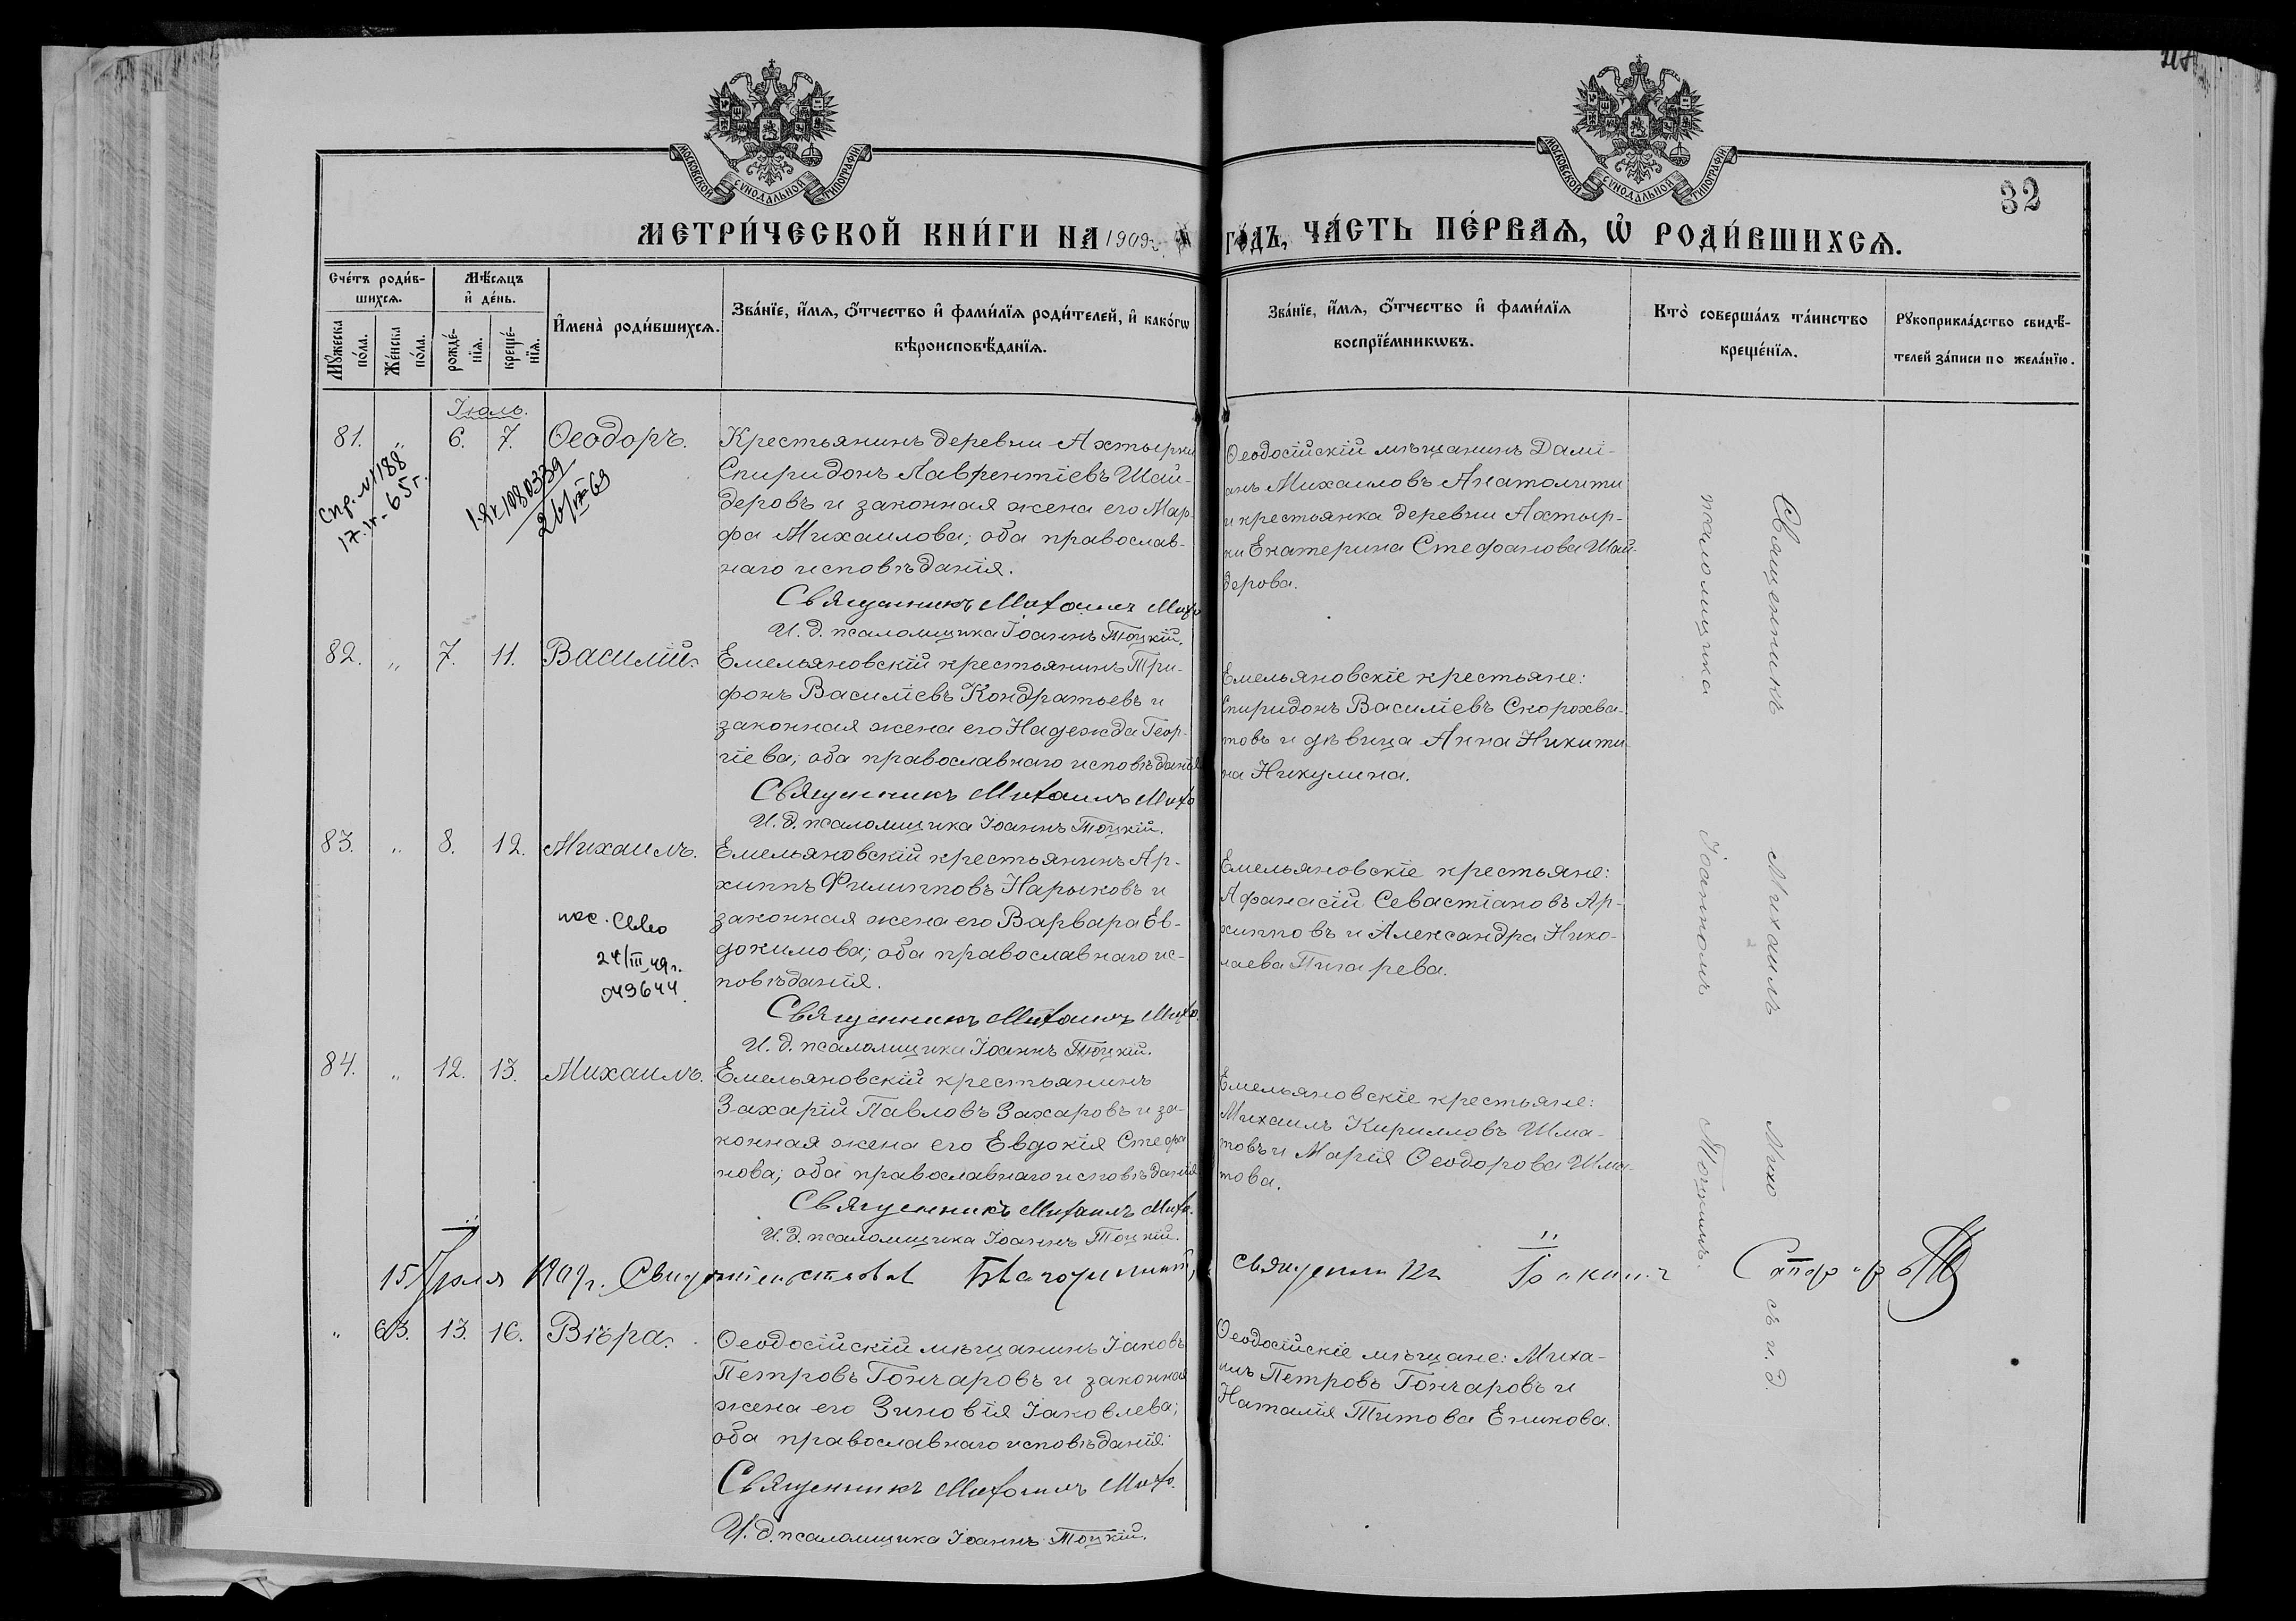 МОСКОВСКОЙ СѴНОДАЛЬНОЙ ТИПОГРАФІИ
МОСКОВСКОЙ СѴНОДАЛЬНОЙ ТИПОГРАФІИ
32
МЕТРИ́ЧЕСКОЙ КНИ́ГИ НА 1909 ГО́ДЪ, ЧА́СТЬ ПЕ́РВАЯ, Ѡ РОДИ́ВШИХСЯ.
Сче́тъ роди́в-
шихся.
Мѣ́сяцъ
и де́нь.
Мꙋ́жеска по́ла.
Же́нска по́ла.
рожде́-
нїя.
креще́-
нїя.
И҆мена̀ роди́вшихся.
Зва́нїе, и҆́мя, ѻ҆́тчество и҆ фами́лїя роди́телей, и҆ како́гѡ
вѣроисповѣ́данїя.
Зва́нїе, и҆́мя, ѻ҆́тчество и҆ фами́лїя
воспрїе́мникѡвъ.
Кто̀ соверша́лъ та́инство
креще́нїя.
Рꙋкоприкла́дство свидѣ́-
телей за́писи по жела́нїю.
Іюль.
81. „ 6. 7. Ѳеодоръ.
Крестьянинъ деревни Ахтырки
Спиридонъ Лаврентіевъ Шай-
деровъ и законная жена его Мар-
фа Михаилова; оба православ-
наго исповѣданія.
Священникъ Михаилъ Михо
И. д. псаломщика Іоаннъ Тоцкій.
Ѳеодосійскій мѣщанинъ Дамі-
анъ Михаиловъ Анатолити
и крестьянка деревни Ахтыр-
ки Екатерина Стефанова Шай-
дерова.
Спр. №1188
17. IV-65г.
1080339
26/III 69
82. „ 7. 11. Василій.
Емельяновскій крестьянинъ Три-
фонъ Василіевъ Кондратьевъ и
законная жена его Надежда Геор-
гіева; оба православнаго исповѣданія
Священникъ Михаилъ Михо
И. д. псаломщика Іоаннъ Тоцкій.
Емельяновскіе крестьяне:
Спиридонъ Василіевъ Скорохва-
товъ и дѣвица Анна Никити-
на Никулина.
83. „ 8. 12. Михаилъ.
Емельяновскій крестьянинъ Ар-
хиппъ Филипповъ Нарыковъ и
законная жена его Варвара Ев-
докимова; оба православнаго ис-
повѣданія.
Священникъ Михаилъ Михо.
И. д. псаломщика Іоаннъ Тоцкій.
Емельяновскіе крестьяне:
Афанасій Севастіановъ Ар-
хипповъ и Александра Нико-
лаева Пигарева.
24/III 49г.
043644
84. „ 12. 13. Михаилъ.
Емельяновскій крестьянинъ
Захарій Павловъ Захаровъ и за-
конная жена его Евдокія Стефа
нова; оба православнаго исповѣданія
Священникъ Михаилъ Михо.
И. д. псаломщика Іоаннъ Тоцкій.
Емельяновскіе крестьяне:
Михаилъ Кирилловъ Шма-
товъ и Марія Ѳеодорова Шма-
това.
15 Іюля 1909 г. Свидѣтельствовалъ Благочинный, священникъ
„ 63. 13. 16. Вѣра.
Ѳеодосійскій мѣщанинъ Іаковъ
Петровъ Гончаровъ и законная
жена его Зиновія Іаковлева;
оба православнаго исповѣданія.
Священникъ Михаилъ Михо.
И. д. псаломщика Іоаннъ Тоцкій.
Ѳеодосійскіе мѣщане: Миха-
илъ Петровъ Гончаровъ и
Наталія Титова Еникова.
Священникъ Михаилъ Михо съ и. д.
псаломщика Іоанномъ Тоцкимъ.